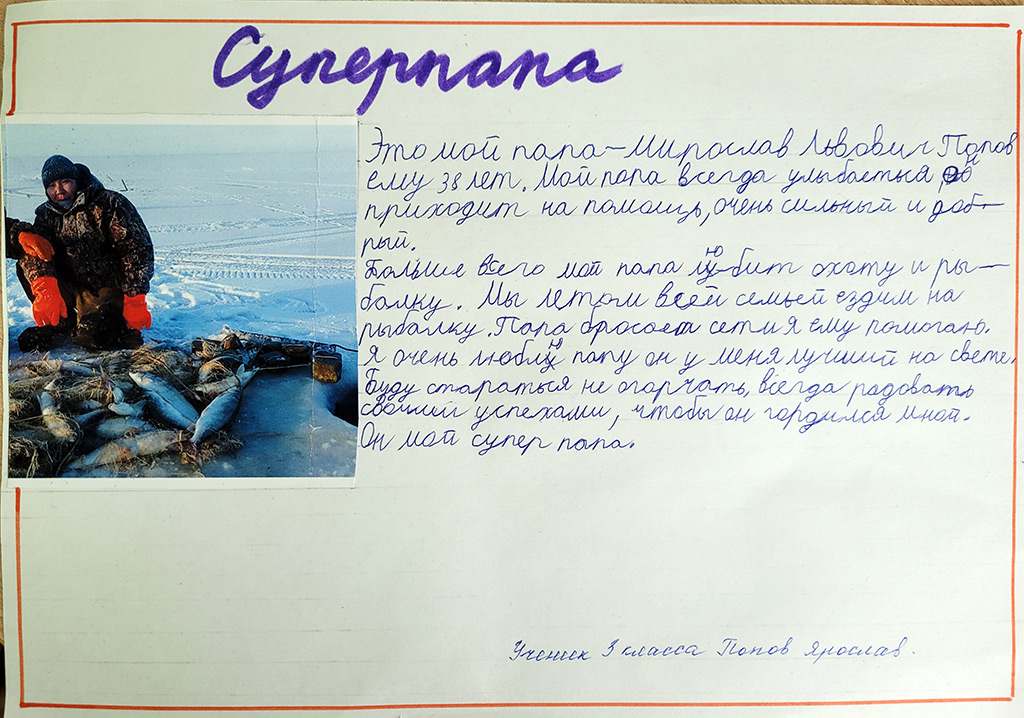 Суперпапа
Это мой папа-Мирослав Львович Попов
ему 38 лет. Мой папа всегда улыбаеться, он
приходит на помощь, очень сильный и доб-
рый.
Больше всего мой папа лю-бит охоту и ры-
балку. Мы летом всей семьей ездим на
рыбалку. Папа бросает сети я ему помогаю.
Я очень люблю папу он у меня лучший на свете.
Буду стараться не огорчать, всегда радовать
своими успехами, чтобы он гордился мной.
Он мой супер папа.
Ученик 3 класса Попов Ярослав.